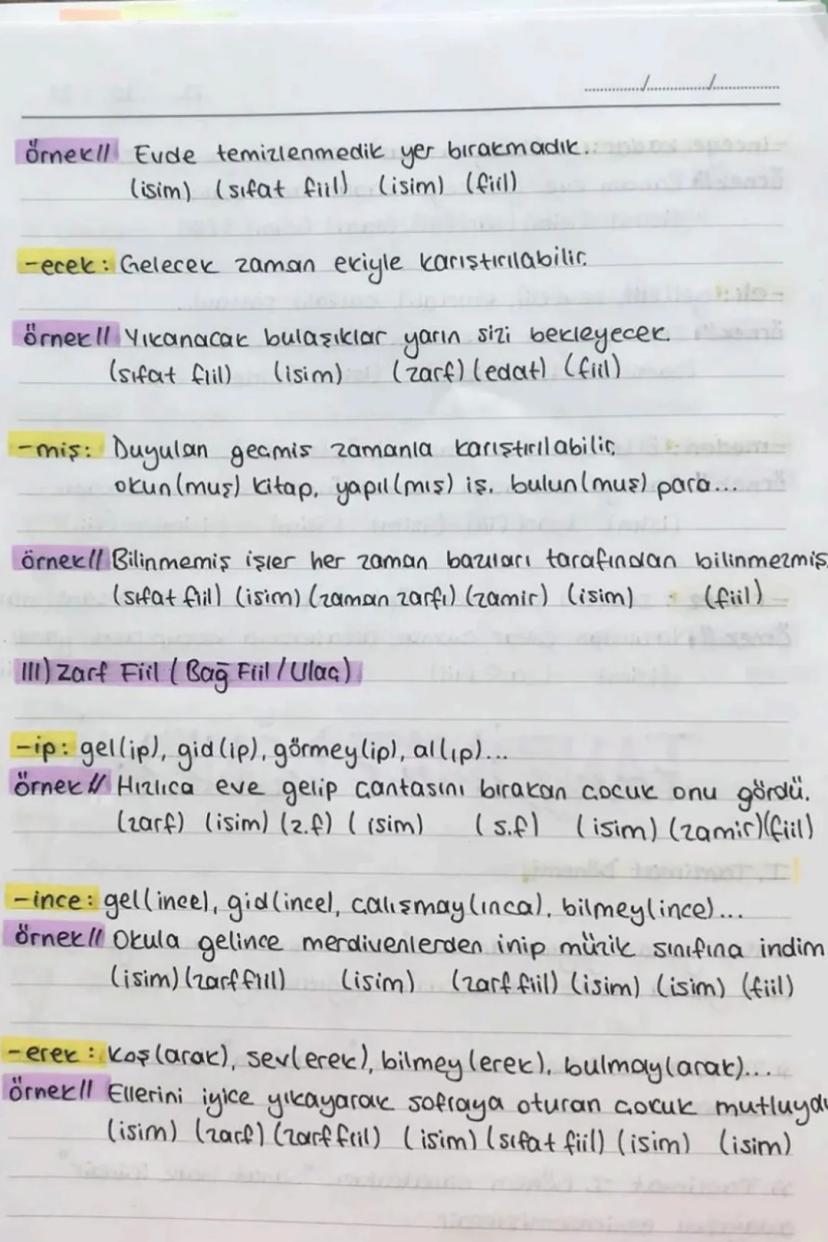 ......../......../........
örnek// Evde temizlenmedik yer bırakmadık.
(isim) (sıfat fiil) (isim) (fiil)
-ecek: Gelecek zaman ekiyle karıştırılabilir.
örnek// Yıkanacak bulaşıklar yarın sizi bekleyecek.
(sıfat fiil) (isim) (zarf) (edat) (fiil)
-miş: Duyulan geçmiş zamanla karıştırılabilir,
okun(muş) kitap, yapıl(mış) iş, bulun(muş) para...
örnek// Bilinmemiş işler her zaman bazıları tarafından bilinmezmiş
(sıfat fiil) (isim) (zaman zarfı) (zamir) (isim) (fiil)
III) Zarf Fiil (Bağ Fiil / Ulaç)
-ip: gel(ip), gid(ip), görmey(ip), al(ıp)...
örnek// Hızlıca eve gelip çantasını bırakan çocuk onu gördü.
(zarf) (isim) (z.f) (isim) (s.f) (isim) (zamir) (fiil)
-ince: gel(ince), gid(ince), çalışmay(ınca), bilmey(ince)...
örnek// Okula gelince merdivenlerden inip müzik sınıfına indim
(isim) (zarf fiil) (isim) (zarf fiil) (isim) (isim) (fiil)
-erek: koş(arak), sev(erek), bilmey(erek), bulmay(arak)...
örnek// Ellerini iyice yıkayarak sofraya oturan çocuk mutluydu
(isim) (zarf) (zarf fiil) (isim) (sıfat fiil) (isim) (isim)